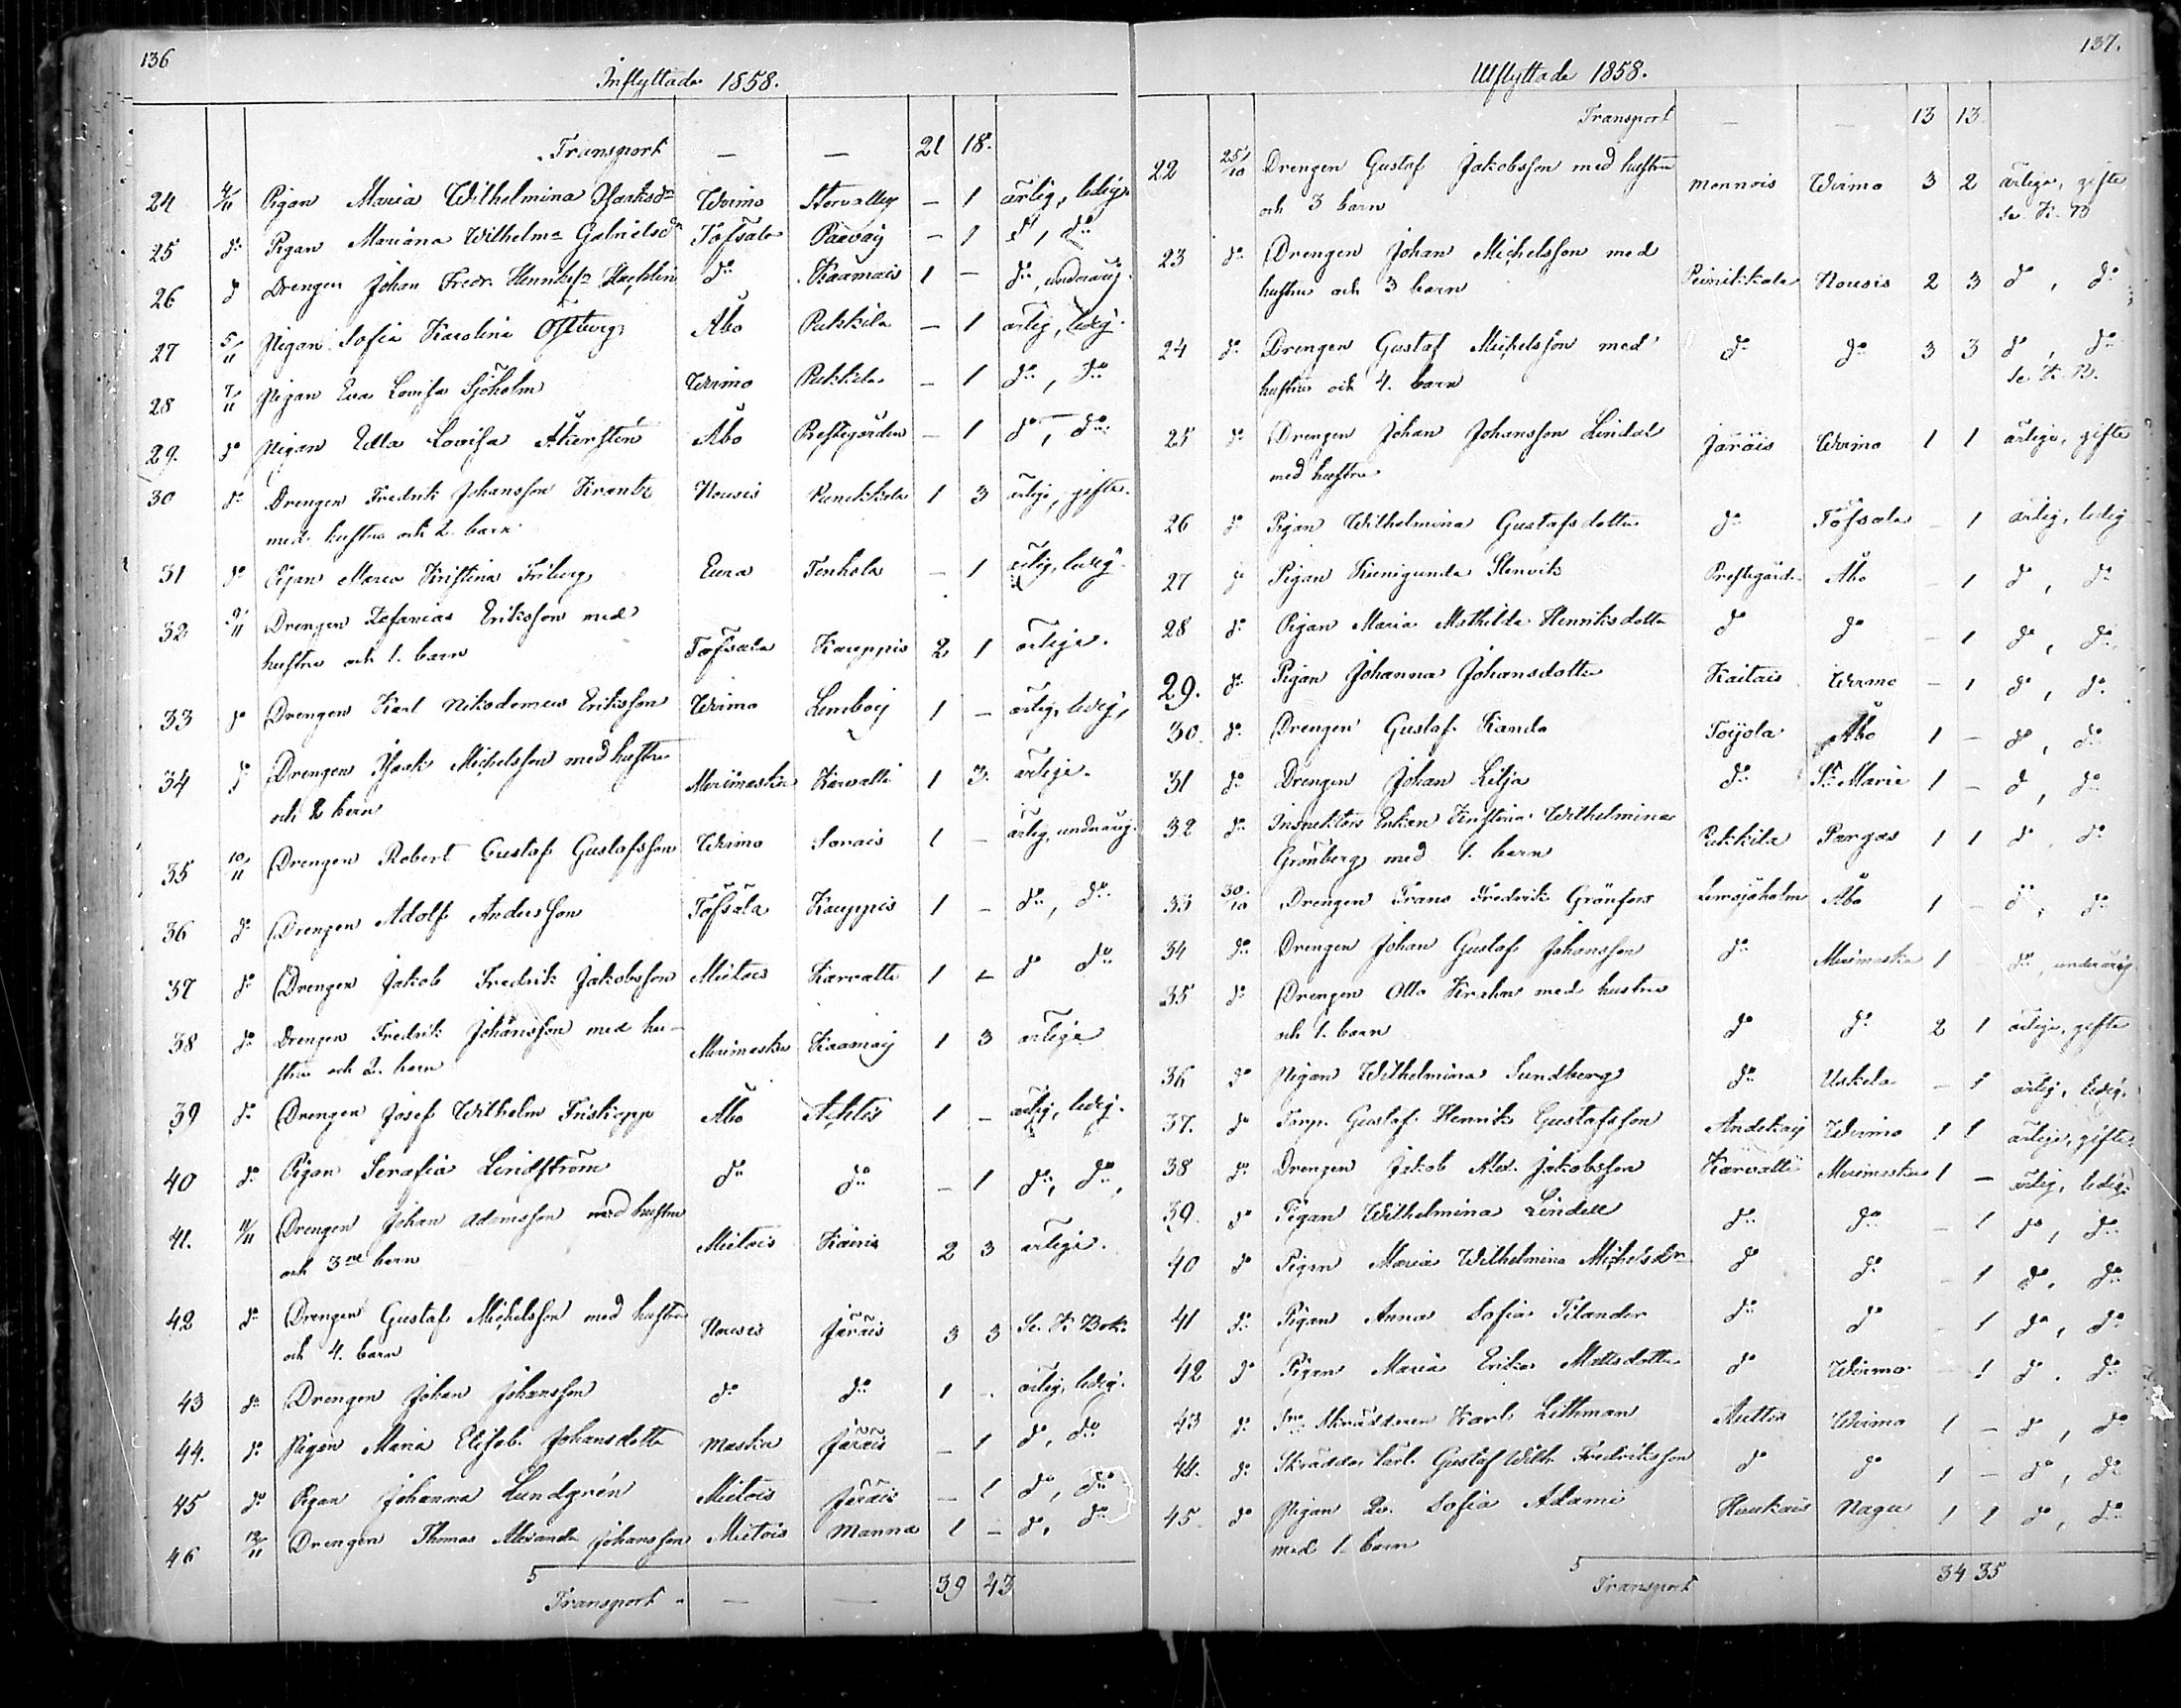 136
Inflyttade 1858.
Transport — — 21 18.
24 4/11 Pigan Maria Wilhelmina Isaksdr Wirmo Storvalley — 1 ärlig, ledig.
25 do Pigan Mariana Wilhelma Gabrielsdr Töfsala Paavay — 1 do, do
26 do Drengen Johan Fredr. Henrikss. do Kaamais 1 — do, underårig.
27 5/11 Pigan Sofia Karolina Åbo Pukkila — 1 ärlig, ledig.
28 7/11 Pigan Eva Lovisa Sjöholm Wirmo Pukkila — 1 do, do
29. do Pigan Edla Lovisa Åkersten Åbo Prestegården — 1 do, do
30 do Drengen Fredrik Johansson Krantz Nousis 1 3 ärlige, gifte.
med hustru och 2 barn
31 do Pigan Maria Kristina Friberg Eura Tenhola — 1 ärlig, ledig.
32 9/11 Drengen Zefanias Eriksson med
hustru och 1. barn Töfsala Kauppis 2 1 ärlige.
33 do Drengen Karl Nikodemus Eriksson Wirmo Lemböij 1 — ärlig, ledig,
34 do Drengen Isaak Michelsson med hustru
och 2 barn Merimasku Karvatti 1 3. ärlige.
35 10/11 Drengen Robert Gustaf Gustafsson Wirmo Sorais 1 — ärlig, underårig.
36 do Drengen Adolf Andersson Töfsala Kauppis 1 — do, do
37 do Drengen Jakob Fredrik Jakobsson Mietois Karvatti 1 — do do
38 do Drengen Fredrik Johansson med hu-
stru och 2. barn Merimasku Kaamaij 1 3 ärlige
39 do Drengen Josef Wilhelm Friskopp Åbo Achtis 1 — ärlig, ledig.
40 do Pigan Serafia Lindström do do — 1 do, do,
41. 11/11 Drengen Johan Adamsson med hustru
och 3ne barn Mietois Kairis 2 3 ärlige.
42 do Drengen Gustaf Michelsson med hustru
och 4. barn Nousis Järäis 3 3 Se. K. Bok.
43 do Drengen Johan Johansson do do 1 - ärlig, ledig.
44. do Pigan Maria Elisab. Johansdotter Masku Järäis — 1 do, do
45 do Pigan Johanna Lundgrén Mietois Järäis — 1 do, do
46 12/11 Drengen Thomas Alexander Johansson Mietois Manna 1 — do, do
5
Transport - — — 39 43
137.
Utflyttade 1858.
Transport — — 13 13
22 25/10 Drengen Gustaf Jakobsson med hustru
och 3 barn Monnois Wirmo 3 2 ärlige, gifte
se K. B
23 do Drengen Johan Michelsson med
hustru och 3 barn Nousis 2 3 do, do
24 do Drengen Gustaf Michelsson med
hustru och 4. barn do do 3 3 do, do
se K. B.
25 do Drengen Johan Johansson Lindal
med hustru Järäis Wirmo 1 1 ärlige, gifte
26 do Pigan Wilhelmina Gustafsdotter do Töfsala — 1 ärlig, ledig
27 do Pigan Kunigunda Stenvik Prestegård. Åbo — 1 do, do
28 do Pigan Maria Mathilda Henriksdotter do do — 1 do, do
29. do Pigan Johanna Johansdotter Kaitais Wirmo — 1 do, do
30. do Drengen Gustaf Kanda Toijola Åbo 1 — do, do
31 do Drengen Johan Lilja do St. Marie 1 — do, do
32 do Inspektors Enkan Kristina Wilhelmina
Grönberg med 1. barn Pukkila Pargas 1 1 do, do
33 30/10 Drengen Frans Fredrik Grönfors Lemsjöholm Åbo 1 — do, do
34 do Drengen Johan Gustaf Johansson do Merimasku 1 — do, underårig
35 do Drengen Otto Krahn med hustru
och 1. barn do do 2 1 ärlige, gifte
36 do Pigan Wilhelmina Sundberg do Uskela — 1 ärlig, ledig.
37. do Torp. Gustaf Henrik Gustafsson Andikaij Wirmo 1 1 ärlige, gifte
38 do Drengen Jakob Alex. Jakobsson Karvatti Merimasku 1 — ärlig, ledig.
39. do Pigan Wilhelmina Lindell do do — 1 do, do
40 do Pigan Maria Wilhelmina Michelsdr do do — 1 do, do
41 do Pigan Anna Sofia Tilander do do — 1 do, do
42 do Pigan Maria Erika Mattsdotter do Wirmo — 1 do, do
43 do Skräddaren Karl Lithman Auttis Wirmo 1 — do, do
44. do Skräddar lärl. Gustaf Wilh. Fredriksson do do 1 — do, do
45. do Pigan Sofia Adami
med 1 barn Haukais Nagu 1 1 do, do
5
Transport 34 35